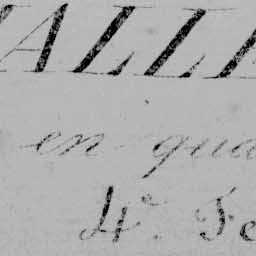 VALLE
en qua
4e. Fe